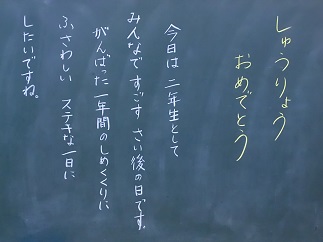 しゅうりょう
おめでとう
今日は 二年生として
みんなで すごす さい後の日です。
がんばった 一年間のしめくくりに
ふさわしい ステキな一日に
したいですね。